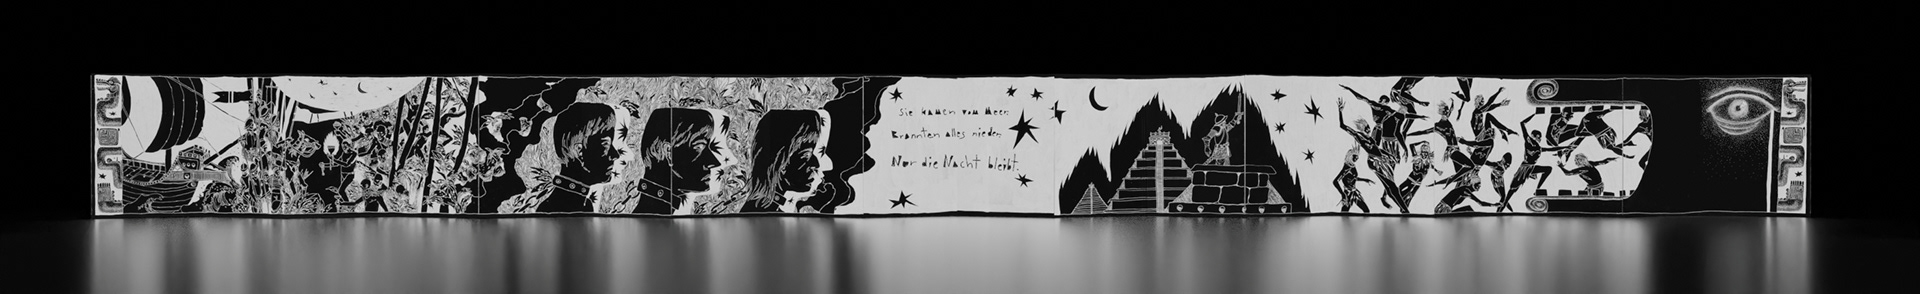 Sie kamen vom Meer
Brannten alles nieder
Nur die Nacht bleibt.